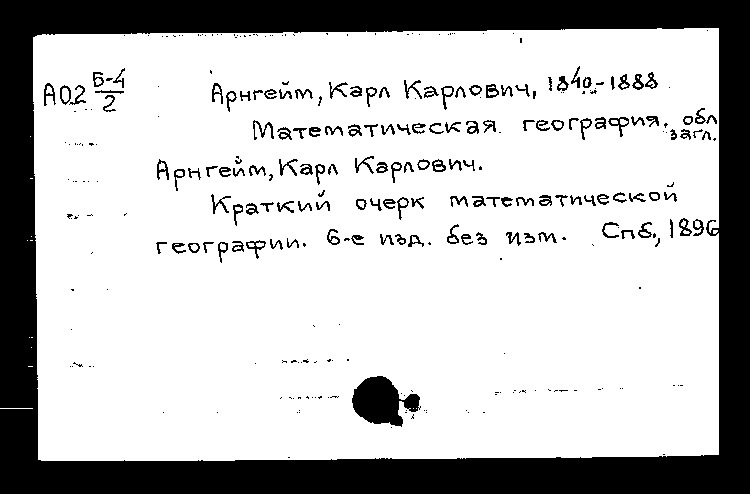 А02 Б-4/2
Арнгейм, Карл Карлович, 1840-1888
Математическая география. обл.
загл.
Арнгейм, Карл Карлович.
Краткий очерк математической
географии. 6-е изд. без изм. Спб., 1896